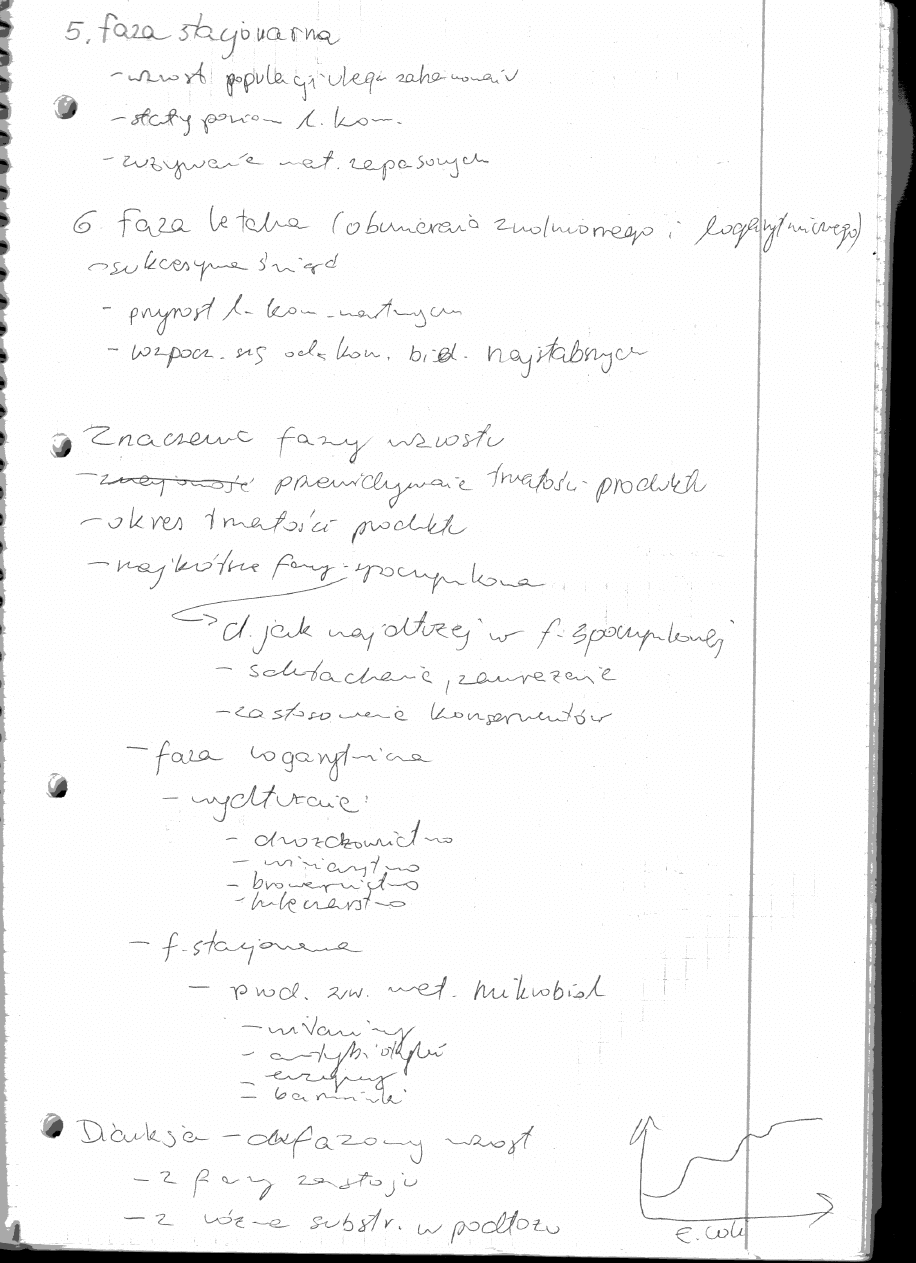 5. faza stacjonarna
- wzrost populacji ulega zahamowaniu
- stały poziom l. kom.
- zużywanie mat. zapasowych
6 faza letalna (obumierania zwolnionego i logarytmicznego)
- sukcesywna śmierć
- przyrost l. kom. martwych
- wzpocz. się od kom. biol. najsłabszych
Znaczenie fazy wzrostu
- przewidywanie trwałości produktu
- okres trwałości produktu
- najkrótsze fazy spoczynkowa
d. jak najdłużej w f. spoczynkowej
- schładzanie, zamrażanie
- zastosowanie konserwantów
- faza logarytmiczna
- wydłużanie:
- drożdżownictwo
- winiarstwo
- browarnictwo
- mleczarstwo
- f. stacjonarna
- prod. zw. met. mikrobiol
- witaminy
- antybiotyków
- enzymy
- barwniki
Diauksja - dwfazowy wzrost
- 2 fazy zastoju
- 2 różne substr. w podłożu
E. coli